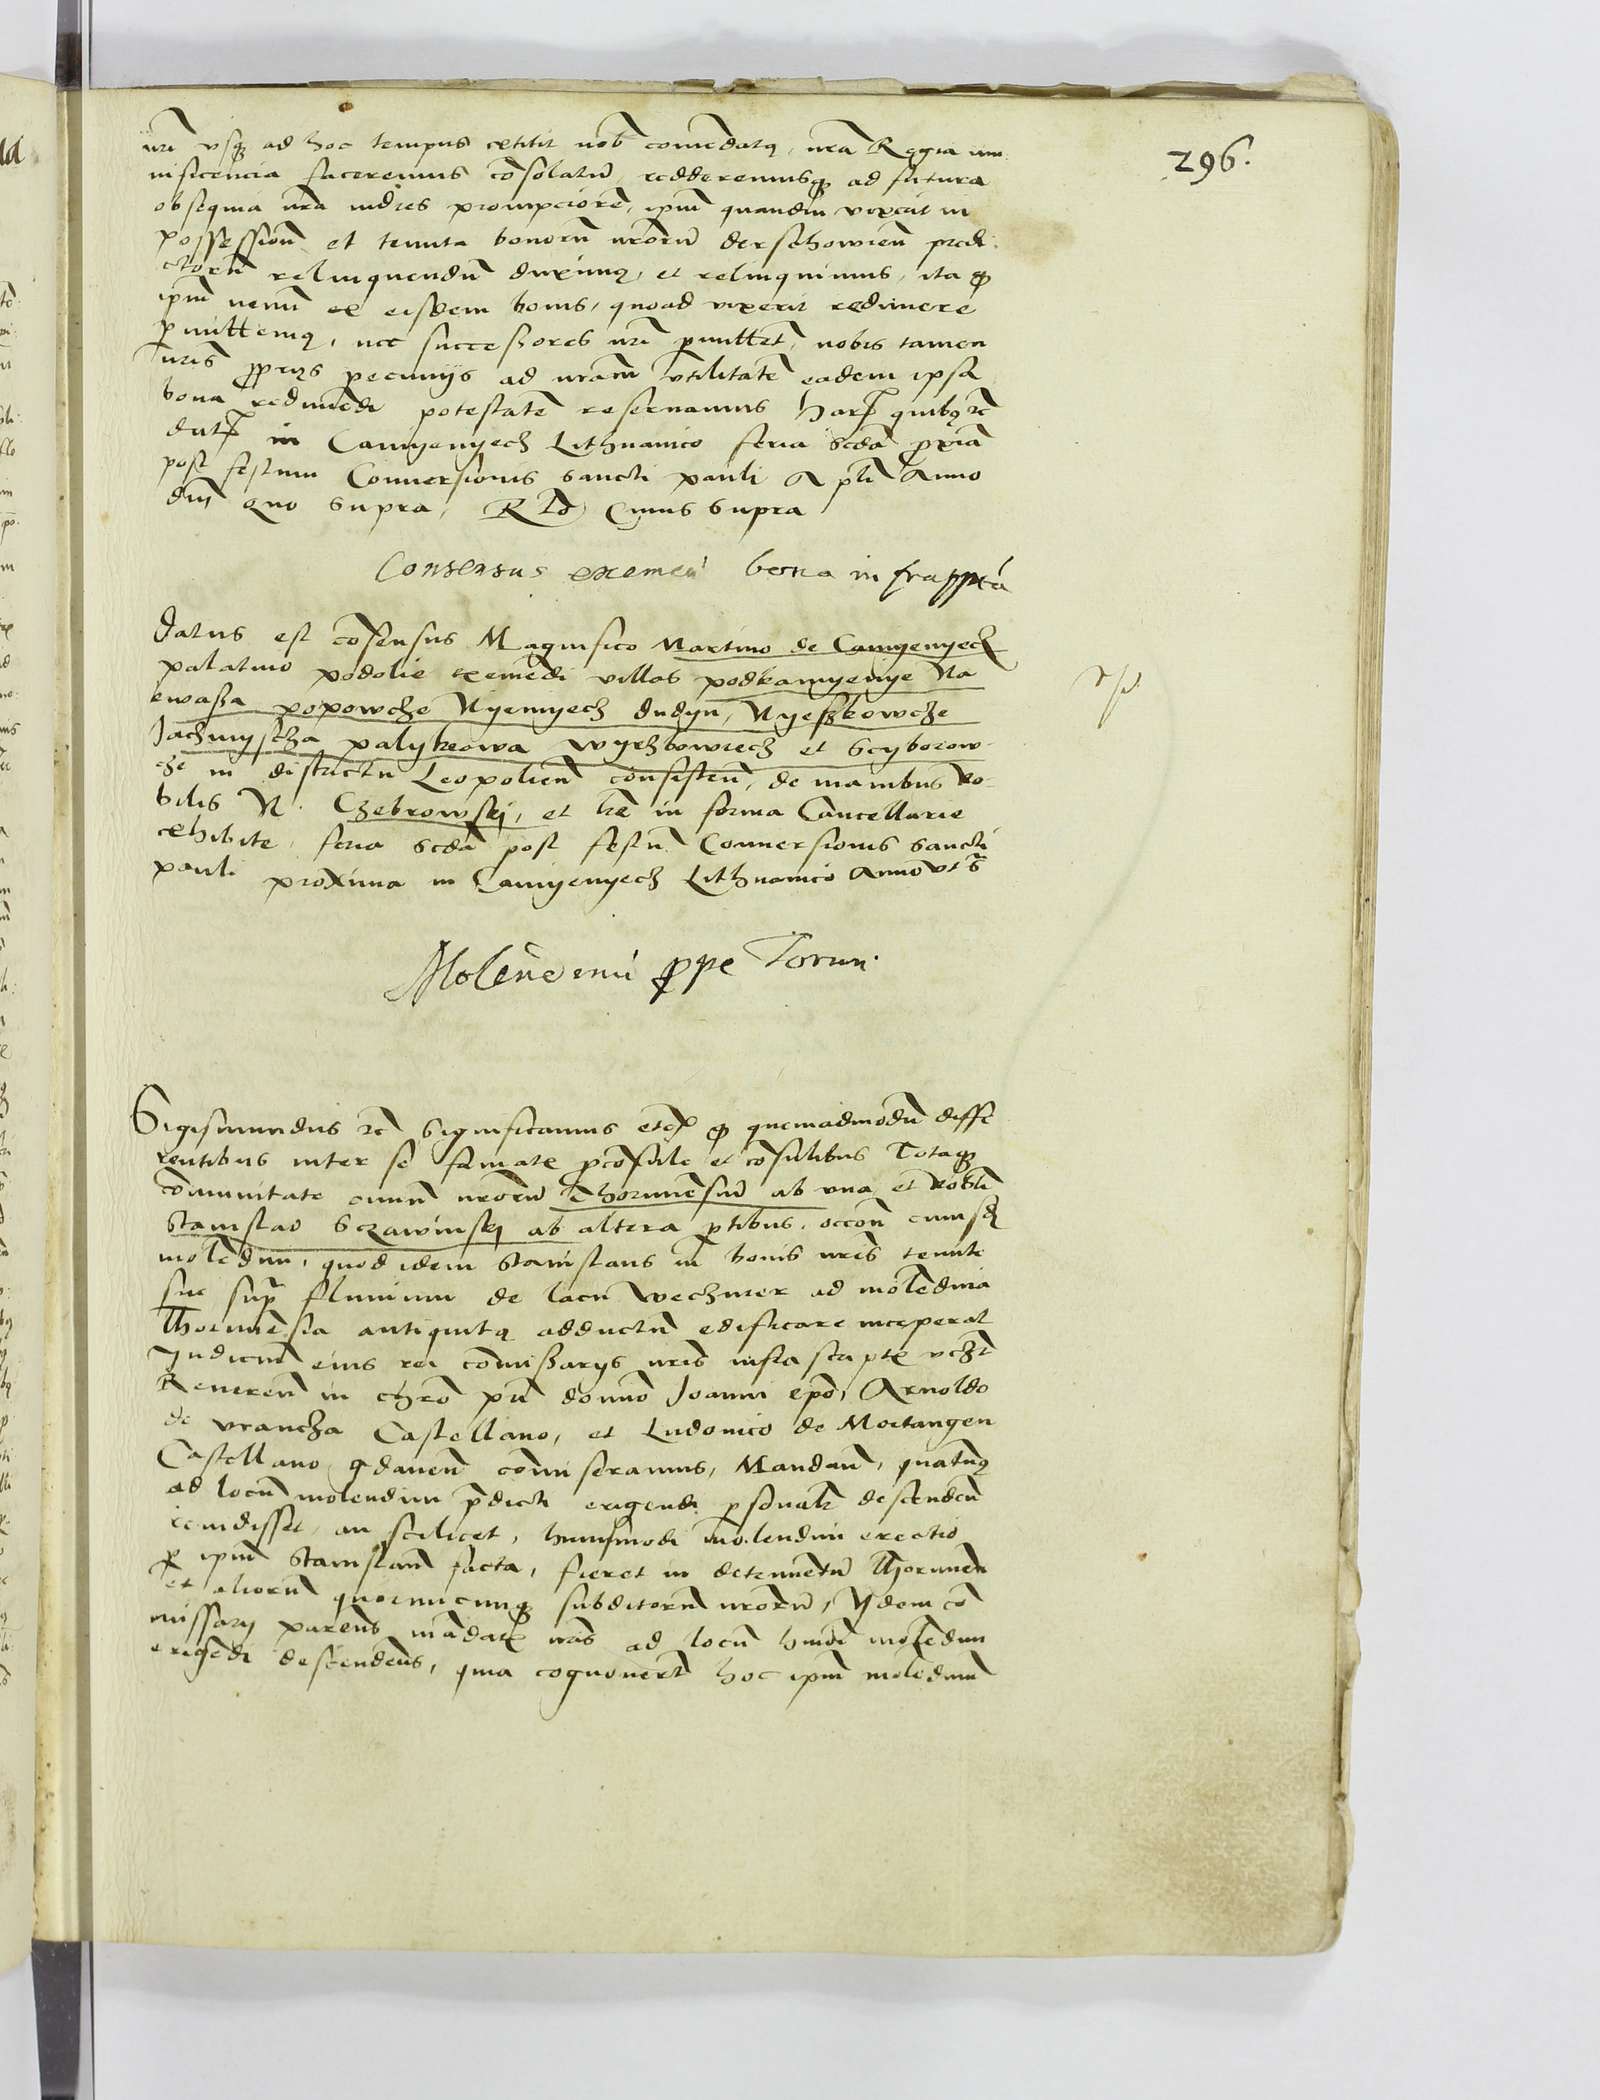 296.
usq3 ad hoc tempus extitit nob comedatq, nra Regia mu
nificencia faceremus cosolatu, redderemusq3 ad futura
obsequia nra indies prompciore, ipm quandiu vixerit in
possession et tenuta bonoru nroru derschowien predi
ctoru relinquendu duximq, et relinquimus, ita q
ipm nemi ex eisdem bonis, quoad vixerit redimere
pmittemq, nec successores nri pmittet, nobis tamen
nris propriis pecuniis ad nram utilitate eadem ipsa
bona redimedi potestate reservamus Har quibq rc
dat in Camyenyecz Lithuanico feria scda proxia
post festum Conversionis sancti pauli Apli Anno
dni quo supra, Rlo Cuius supra
Consensus eximedi bona infrascripta
Datus est cosensus Magnifico Martino de Camyenyecz
palatino podolie exemedi villas podkamyenye Na
kwassa popowcze Nyemyecz dudyn, Nyeszkowcze
Jachmyscza palykrowa wyerzbowiecz et Scyborow
cze in districtu Leopolien consisten, de manibus no
bilis N. Czebrowskj, et lre in forma Cancellarie
exhibite, feria scda post festu Conversionis sancti
pauli proxima in Camyenyecz Lithuanico Anno ut s
Molendinu prope Torun.
Sigismundus rc Significamus etc q quemadmodu diffe
rentibus inter se famatis pconsule et cosulibus Totaq3
comunitate civium nroru Thorunensiu ab una et Nobli
Stanislao Sczawinskj ab altera ptibus, occon cuiusd
moledini, quod idem Stanislaus in bonis nris tenute
sue supra flumium de lacu wechmer ad moledina
Thorunesia antiquitq adductu edificare inceperat
Judicium eius rei comissariis nris infrascriptis vczt
Reveren in chro pri domino Joanni epo, Arnoldo
de vrancza Castellano, et Ludovico de Mortangen
Castellano gdanen comiseramus, Mandan, quatinq
ad locu molendini pdicti erigendi psonalr descenden
vidisset, an scilicet, huiusmodi molendini erectio
p ipm Stanislaum facta, fieret in detrimentu Thorunen
et aliorum quorumcunq3 subditoru nroru, Ijdem co
missarij parens madatis nris ad locu huiodi moledini
erigedi descendens, quia cognovert hoc ipm moledinu